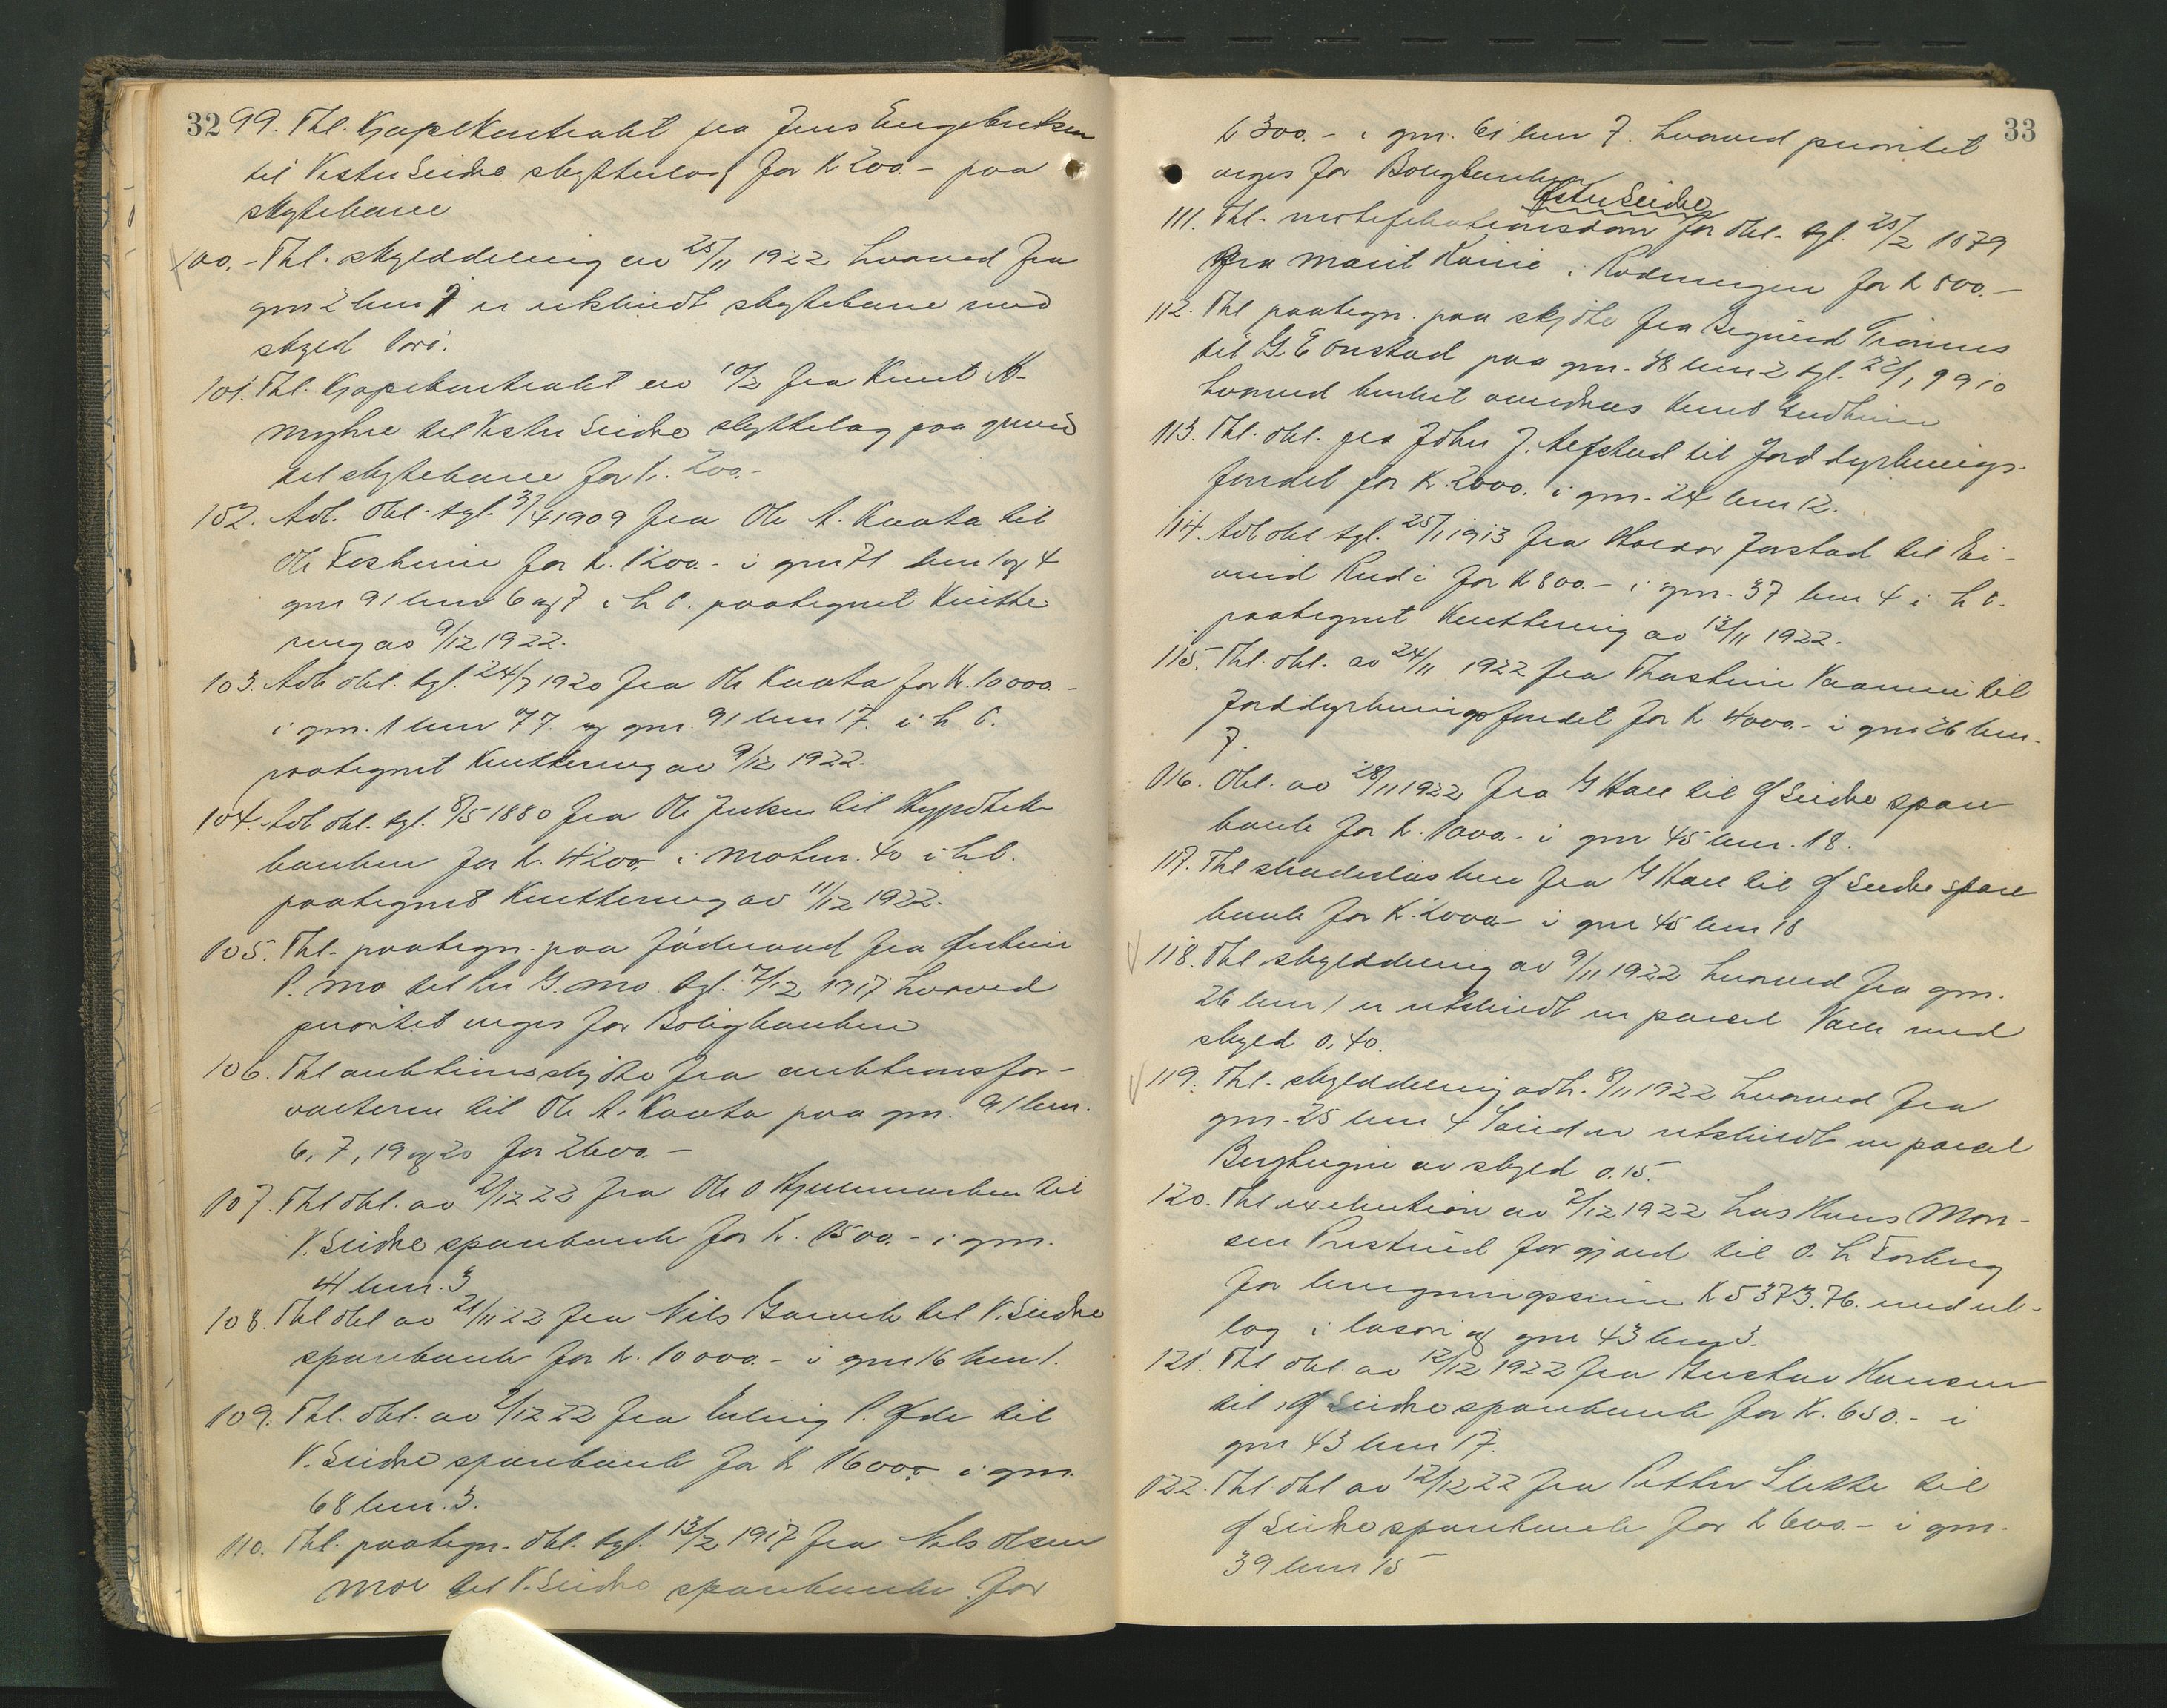 32
99. Thl. Kjøpekontrakt fra Jens Engebretsen
til Vestre Slidre skytterlag for K 200.- paa
skytebane
100. - Thl. skylddeling av 25/11 1922 hvorved fra
gnr 2 bnr 9 er utskildt skytebane med
skyld
101. Thl. Kjøpekontrakt av 10/2 fra Knut A-
myhre til Vestre Slidre skyttelag paa grund
til skytebane for K. 200.-
102. Avl. obl. tgl. 3/4 1909 fra Ole A. Kvata til
Ole for K. 1200.- i gnr 71 bnr 1 og 4
gnr 91 bnr 6 og 7 i h t. paategnet kvitte
ring av 9/12 1922.
103. Avl. obl. tgl. 24/7 1920 fra Ole Kvata for K. 10000.-
i gnr. 1 bnr 77. og gnr. 91 bnr 17. i h t.
paategnet kvittering av 9/12 1922.
104. Avl. obl. tgl. 8/5 1880 fra Ole til Hypothek
banken for K. 4200. i matnr. 40 i h t.
paategnet kvittering av 11/12 1922.
105. Thl. paategn. paa føderaad fra Østein
P. Mo til G. Mo tgl. 7/12 1917 hvorved
prioritet viges for Boligbanken
106. Thl auktionsskjøte fra auktionsfor-
valteren til Ole A. Kvata paa gnr. 91 bnr.
6, 7, 19 og 20 for 2600.-
107. Thl obl. av 2/12 22 fra Ole O til
V. Slidre sparebank for K. 1500.- i gnr.
bnr. 3
108. Thl obl av 21/11 22 fra Nils til V. Slidre
sparebank for K. 10000.- i gnr 16 bnr 1.
109. Thl. obl. av 2/12 22 fra Erling P. til
V. Slidre sparebank for K 16000 i gnr.
68 bnr. 3.
110. Thl. paategn. obl. tgl. 13/2 1917 fra Nils Olsen
Moe til V. Slidre sparebank for
33
K 300.- i gnr. 61 bnr 7. hvorved prioritet
viges for Boligbanken
Østre Slidre
111. Thl. mortifikationsdom for obl. tgl. 25/2 1879
fra Marit i for K 800.-
112. Thl paategn. paa skjøte fra Sigurd
til G E Onstad paa gnr. 48 bnr 2 tgl. 22/1 1910
hvorved Knut
113. Thl. obl. fra John J. til Jorddyrknings-
fondet for K. 2000. i gnr. 24 bnr 12.
114. Avl obl tgl. 25/1 1913 fra Halvor til Ei-
vind Rudi for K 800.- i gnr. 37 bnr 4 i h t.
paategnet kvittering av 13/11 1922.
115. Thl. obl. av 24/11 1922 fra Thorstein til
Jorddyrkningsfondet for K. 4000.- i gnr 26 bnr.
7.
116. Obl. av 28/11 1922 fra G Hall til Ø Slidre spare
bank for K. 1000.- i gnr 45 bnr. 18.
117. Thl skadesløsbrev fra G Hall til Ø Slidre spare
bank for K. 2000 i gnr 45 bnr 18
118. Thl skylddeling av 9/11 1922 hvorved fra gnr.
26 bnr 1 er utskildt en parcel med
skyld 0.40.
119. Thl. skylddeling avh. 8/11 1922 hvorved fra
gnr. 25 bnr 4 er utskildt en parcel
av skyld 0.15.
120. Thl exekution av 2/12 1922 hos Hans Mon-
sen for gjæld til O. L Forberg
for K 5373.76. med ut-
læg i løsøre og gnr 43 bnr 3.
121. Thl obl av 12/12 1922 fra Gustav Hansen
til Ø Slidre sparebank for K. 650.- i
gnr 43 bnr 17.
122. Thl obl av 12/12 22 fra Petter til
Ø Slidre sparebank for K 600.- i gnr.
39 bnr 15